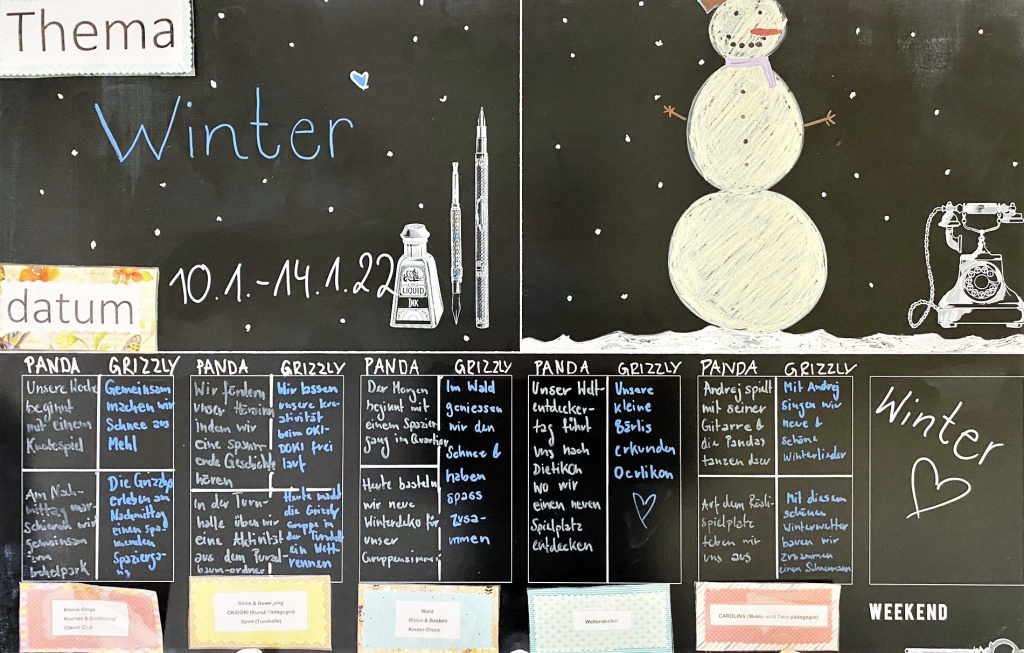 Thema
Winter
datum
10.1.-14.1.22
LIQUID
INK
PANDA
Unsere Woche
beginnt
mit einem
Kreisspiel
Am Nach-
mittag
wir
gemeinsam
zum
GRIZZLY
Gemeinsam
machen wir
Schnee aus
Mehl
Die Grizzlys
erleben am
Nachmittag
einen spa-
nnenden
Spazierga-
ng
PANDA
Wir fördern
unser Hören
indem wir
eine spann-
ende Geschichte
hören
In der Turn-
halle üben wir
eine Aktivität
aus dem
GRIZZLY
Wir lassen
unsere kre-
ativität
beim OKI-
DOKI frei
lauf
Heute macht
die Grizzly
Gruppe in
der Turnhalle
ein Wett-
rennen
PANDA
Der Morgen
beginnt mit
einem Spazier-
gang im Quartier
Heute basteln
wir neue
Winterdeko für
unser
Gruppenzimmer
GRIZZLY
Im Wald
geniessen
wir den
Schnee &
haben
spass
zusa-
mmen
PANDA
Unser Welt-
entdecker-
tag führt
uns nach
Dietikon
wo wir
einen neuen
Spielplatz
entdecken
GRIZZLY
Unsere
kleine
Bärlis
erkunden
Oerlikon
PANDA
Andrej spielt
mit seiner
Gitarre &
die Pandas
tanzen dazu
Auf dem
spielplatz
toben wir
uns aus
GRIZZLY
Mit Andrej
singen wir
neue &
schöne
Winterlieder
Mit diesem
schönen
Winterwetter
bauen wir
zusammen
einen Schneemann
Winter
Kleine Dinge
Kochen & Ernährung/
Clever Club
Sinne & Bewegung
OKIDOKI (Kunst-Pädagogin)
Sport (Turnhalle)
Wald
Malen & Basteln
Kinder-Disco
Weltentdecker
CAROLINA (Musik- und Tanzpädagogin)
WEEKEND